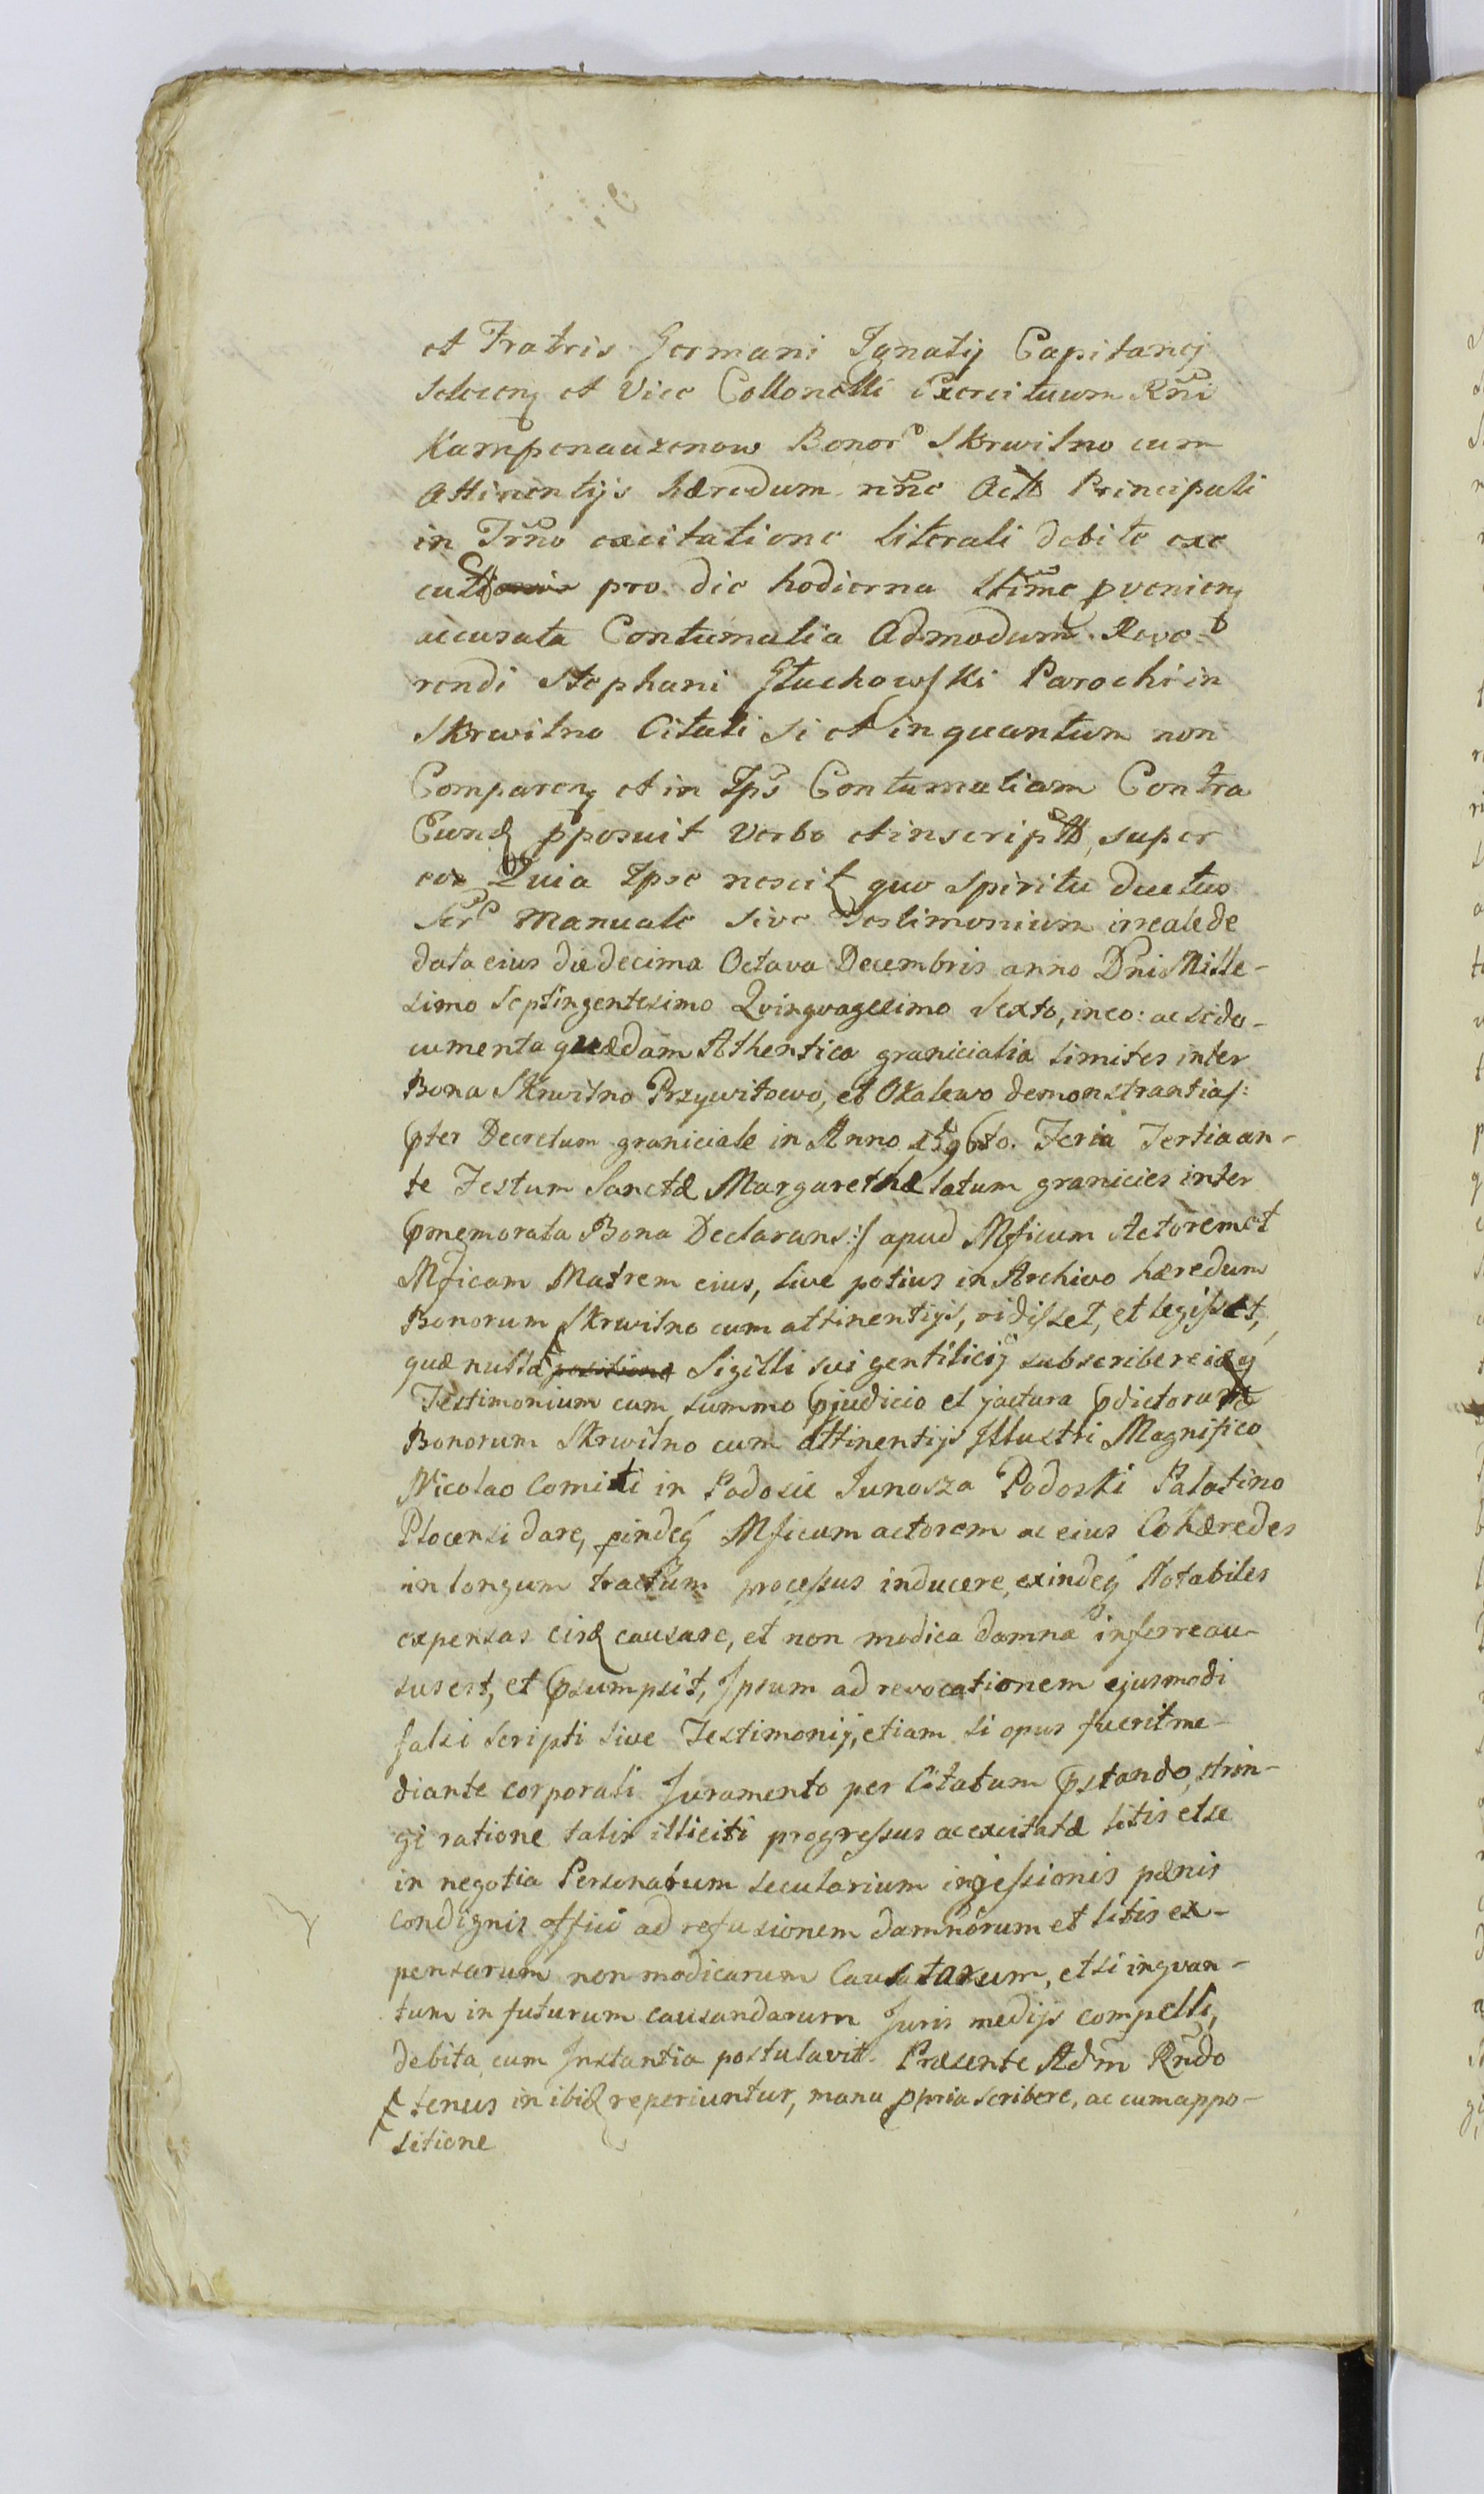 et Fratris Germani Ignatij Capitanej
Selecenꝫ et Vice Collonelli Exercituum Rñi
Kampenauzenow Bonorꝫ Skrwilno cum
Attinentijs hæredum nñe Actt Principali
in Trño excitatione literali debite exe
cutt pro die hodierna ꝓvenienꝫ
accusata Contumatia Admodum Reve-
rendi Stephani Głuchowski Parochi in
Skrwilno Citati si et in quantum non
Comparenꝫ et in Ips Contumatiam Contra
Eundꝫ pposuit verbo et in scriptt, super
eo Quia Ipse nescit quo spiritu ductus
Scrꝫ Manuale sive Testimonium irreale de
data eius die decima Octava Decembris anno Dni Mille-
simo Septingentesimo Qvingvagesimo Sexto, in eo: ac si do-
cumenta quædam Athentica granicialia limites inter
Bona Skrwilno Przywitowo, et Okalewo demonstrantia /:
pter Decretum graniciale in Anno 1596to. Feria Tertia an-
te Festum Sanctæ Margarethæ latum granicies inter
pmemorata Bona Declarans :/ apud Mficum Actorem et
Mficam Matrem eius, sive potius in Archivo hæredum
Bonorum Skrwilno cum attinentijs, vidisset, et legisset,
quæ nulla positione Sigilli sui gentilicij subscribere
Testimonium cum summo pjudicio et jactura pdictorum
Bonorum Skrwilno cum attinentijs Illustri Magnifico
Nicolao Comiti in Podosie Junosza Podoski Palatino
Plocensi dare, pindeq Mficum actorem ac eius Cohæredes
in longum tractum processus inducere, exindeq Notabiles
expensas eisd causare, et non modica damna inferre au-
sus est, et psumpsit, Ipsum ad revocationem ejusmodi
falsi scripti sive Testimonij, etiam si opus fuerit me-
diante corporali Juramento per Citatum pstando, strin-
gi ratione talis illiciti progressus ac excitatæ litis et se
in negotia Personarum secularium ingessionis pænis
condignis affici ad refusionem damnorum et litis ex-
pensarum non modicarum Causatarum, et si inqvan-
tum in futurum causandarum Juris medijs compelli,
debita cum Instantia postulavit. Præsente Adm Rndo
tenus in ibid reperiuntur, manu ppria scribere, ac cum appo-
sitione